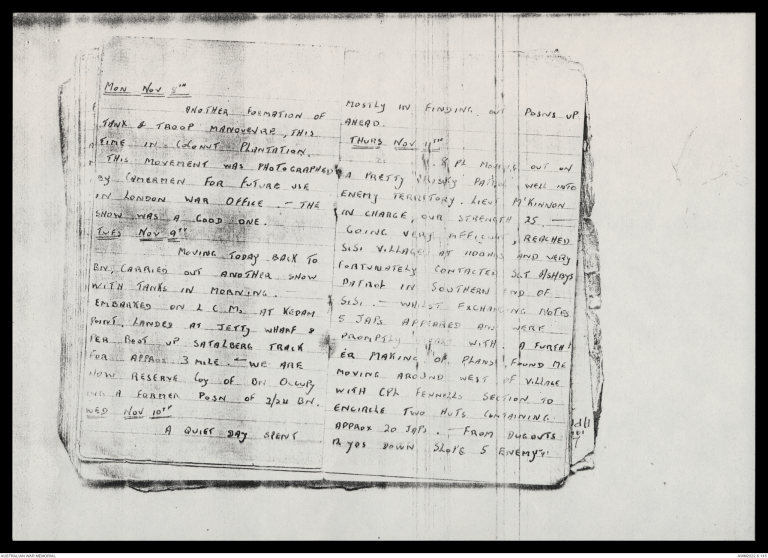 MON NOV 8TH
ANOTHER FORMATION OF
TANK & TROOP MANOUEVRE, THIS
TIME IN COCONUT PLANTATION.
THIS MOVEMENT WAS PHOTOGRAPHED
BY CAMERMEN FOR FUTURE USE
IN LONDON WAR OFFICE. - THE
SHOW WAS A GOOD ONE.
TUES NOV 9TH
MOVING TODAY BACK TO
BN, CARRIED OUT ANOTHER SHOW
WITH TANKS IN MORNING.
EMBARKED ON L C Ms AT KEDAM
POINT, LANDED AT JETTY WHARF &
PER BOOT UP SATALBERG TRACK
FOR APPROX 3 MILE. - WE ARE
NOW RESERVE COY OF BN OCCUPY
ING A FORMER POSN OF 2/24 BN.
WED NOV 10TH
A QUIET DAY SPENT
MOSTLY IN FINDING OUT POSNS UP
AHEAD.
THURS NOV 11TH
8 PL MOVING OUT ON
A PRETTY RISKY PATROL WELL INTO
ENEMY TERRITORY. LIEUT McKINNON
IN CHARGE, OUR STRENGTH 25. -
GOING VERY DIFFICULT, REACHED
SISI VILLAGE AT 1100HRS AND VERY
FORTUNATELY CONTACTED SGT
PATROL IN SOUTHERN END OF
SISI. - WHILST EXCHANGING NOTES
5 JAPS APPEARED AND WERE
PROMPTLY WITH. A FURTH
ER MAKING OF PLANS FOUND ME
MOVING AROUND WEST OF VILLAGE
WITH CPL FENNELLS SECTION TO
ENCIRCLE TWO HUTS CONTAINING
APPROX 20 JAPS. - FROM DUGOUTS
12 YDS DOWN SLOPE 5 ENEMY
AUSTRALIAN WAR MEMORIAL